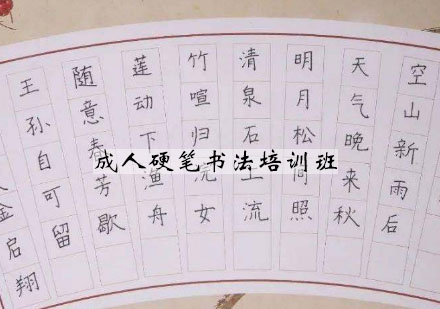 空山新雨后
天气晚来秋
明月松间照
清泉石上流
竹喧归浣女
莲动下渔舟
随意春芳歇
王孙自可留
金启翔
成人硬笔书法培训班